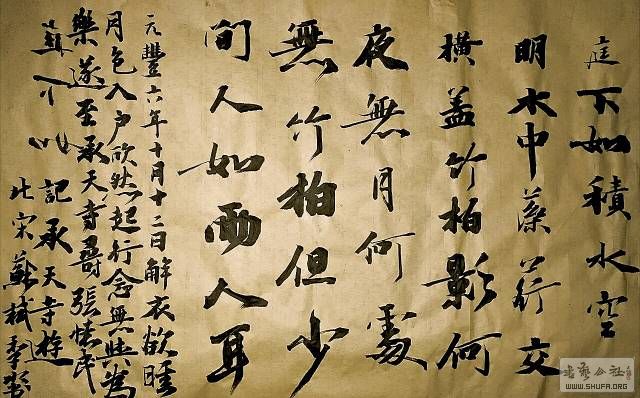 庭下如積水空
明水中藻荇交
横盖竹柏影何
夜無月何處
無竹柏但少
間人如兩人耳
元豐六年十月十二日解衣欲睡
月色入户欣然起行念無與為
樂遂至承天寺尋張懷民
記承天寺遊
宋蘇軾
书艺公社
WWW.SHUFA.ORG